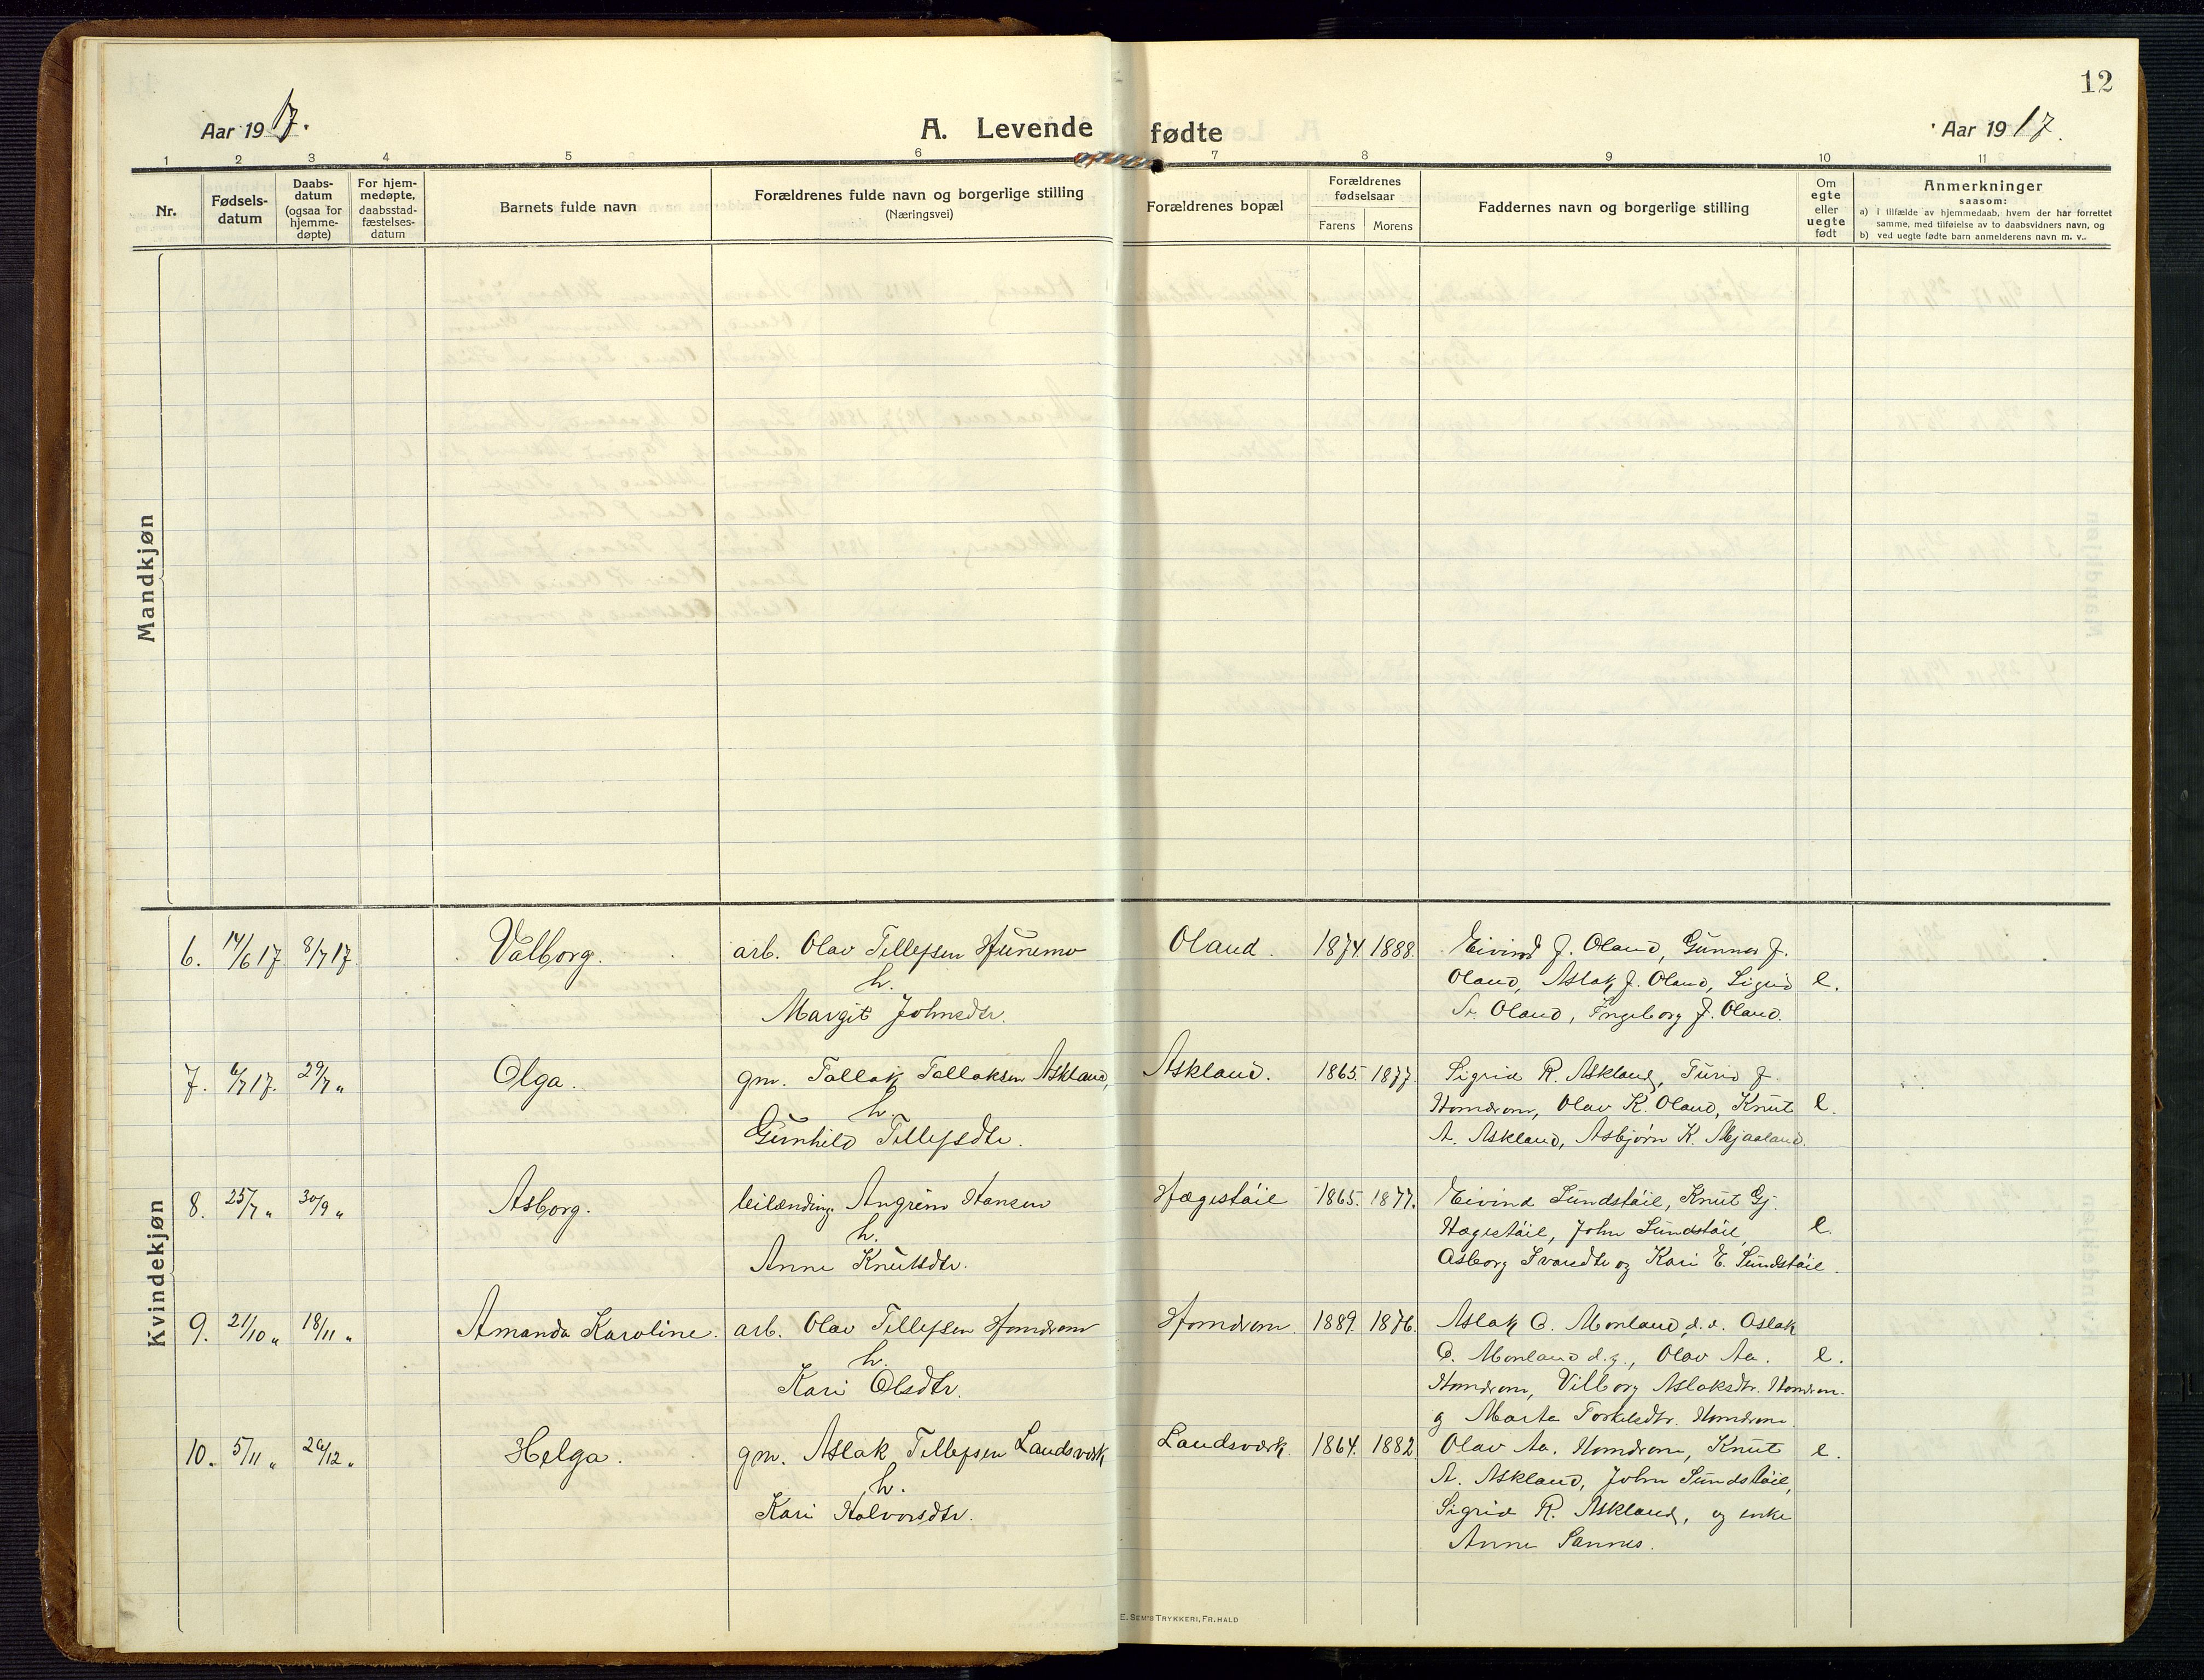 12
Aar 1917.
A. Levende fødte
Aar 1917.
1 2 3 4 5 6 7 8 9 10 11
Nr.
Fødsels-
datum
Daabs-
datum
(ogsaa for
hjemme-
døpte)
For hjem-
medøpte,
daabsstad-
fæstelses-
datum
Barnets fulde navn
Forældrenes fulde navn og borgerlige stilling
(Næringsvei)
Forældrenes bopæl
Forældrenes
fødselsaar
Farens Morens
Faddernes navn og borgerlige stilling
Om
egte
eller
uegte
født
Anmerkninger
saasom:
a) i tilfælde av hjemmedaab, hvem der har forrettet
samme, med tilføielse av to daabsvidners navn, og
b) ved uegte fødte barn anmelderens navn m. v..
Mandkjøn
Kvindekjøn
6. 14/6 17. 8/7 17. Valborg. arb. Olav Tellefsen Hunemo Oland. 1874. 1888. Eivind J. Oland, Gunnar J.
h. Oland, Aslak J. Oland, Sigrid e.
Margit Johnsdtr. Oland, Ingeborg J. Oland.
7. 17. 29/7 „ Olga. gm. Tallak Tallaksen Askland, Askland. 1865. 1877. Sigrid R. Askland, Turid J.
h. Homdrom, Olav K. Oland, Knut e.
Gunhild Tellefsdtr. A. Askland, Asbjørn K. Mjaaland.
8. 25/7 „ 30/9 „ Asborg. leilænding. Angrim Hansen Hægestøil 1865. 1877. Eivind Sundstøil, Knut Gj.
h. Hægestøil, John Sundstøil, e.
Anne Knutsdtr. Asborg og Kari E. Sundstøil.
9. 21/10 „ 18/11 „ Amanda Karoline. arb. Olav Tellefsen Homdrom Homdrom. 1889. 1876. Aslak O. Monland, d. æ. Aslak
h. O. Monland d. y., Olav Aa. e.
Kari Olsdtr. Homdrom, Vilborg Aslaksdtr. Homdrom.
og Marte Torkelsdtr. Homdrom.
10. 5/11 „ 26/12 „ Helga. gm. Aslak Tellefsen Landsverk Landsverk. 1864. 1882 Olav Aa. Homdrom, Knut e.
h. A. Askland, John Sundstøil,
Kari Halvorsdtr. Sigrid R. Askland, og enke
Anne Sannes.
E. SEM'S TRYKKERI, FR. HALD